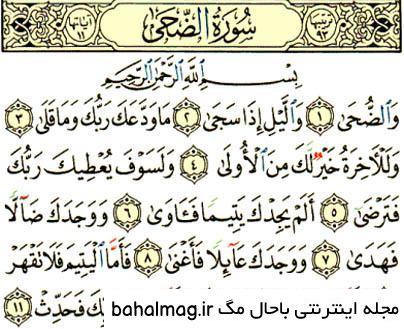 ترتيبها ٩٣ سُورَةُ الضُّحَىٰ آياتها
بِسْمِ اللَّهِ الرَّحْمَٰنِ الرَّحِيمِ
وَالضُّحَىٰ ١ وَاللَّيْلِ إِذَا سَجَىٰ ٢ مَا وَدَّعَكَ رَبُّكَ وَمَا قَلَىٰ ٣
وَلَلْآخِرَةُ خَيْرٌ لَّكَ مِنَ الْأُولَىٰ ٤ وَلَسَوْفَ يُعْطِيكَ رَبُّكَ
فَتَرْضَىٰ ٥ أَلَمْ يَجِدْكَ يَتِيمًا فَـَٔاوَىٰ ٦ وَوَجَدَكَ ضَآلًّا
فَهَدَىٰ ٧ وَوَجَدَكَ عَآئِلًا فَأَغْنَىٰ ٨ فَأَمَّا الْيَتِيمَ فَلَا تَقْهَرْ
فَحَدِّثْ ١١
مجله اینترنتی باحال مگ bahalmag.ir